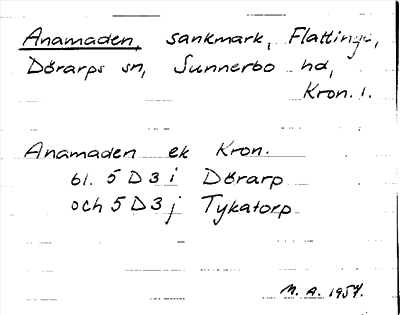 Anamaden, sankmark, Flattinge,
Dörarps sn, Sunnerbo hd,
Kron. l.
Anamaden ek Kron.
bl. 5 D 3 i Dörarp
och 5 D 3 j Tykatorp
M. A. 1957.